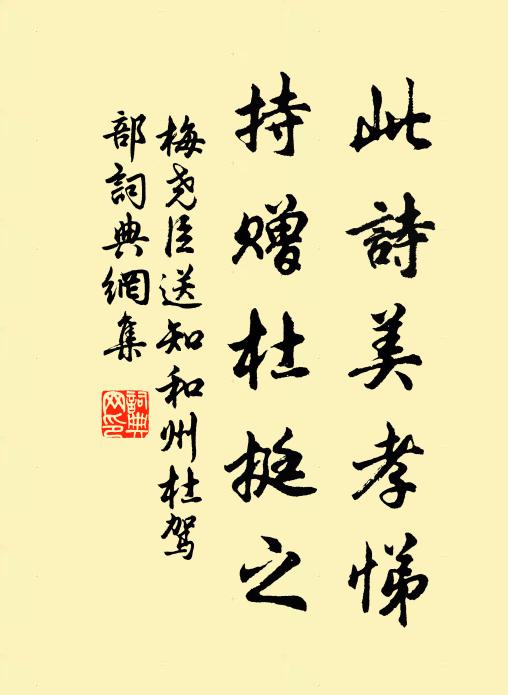 此詩美孝悌
持贈杜挺之
梅尧臣送知和州杜駕
部詞典網集
詞典
网印